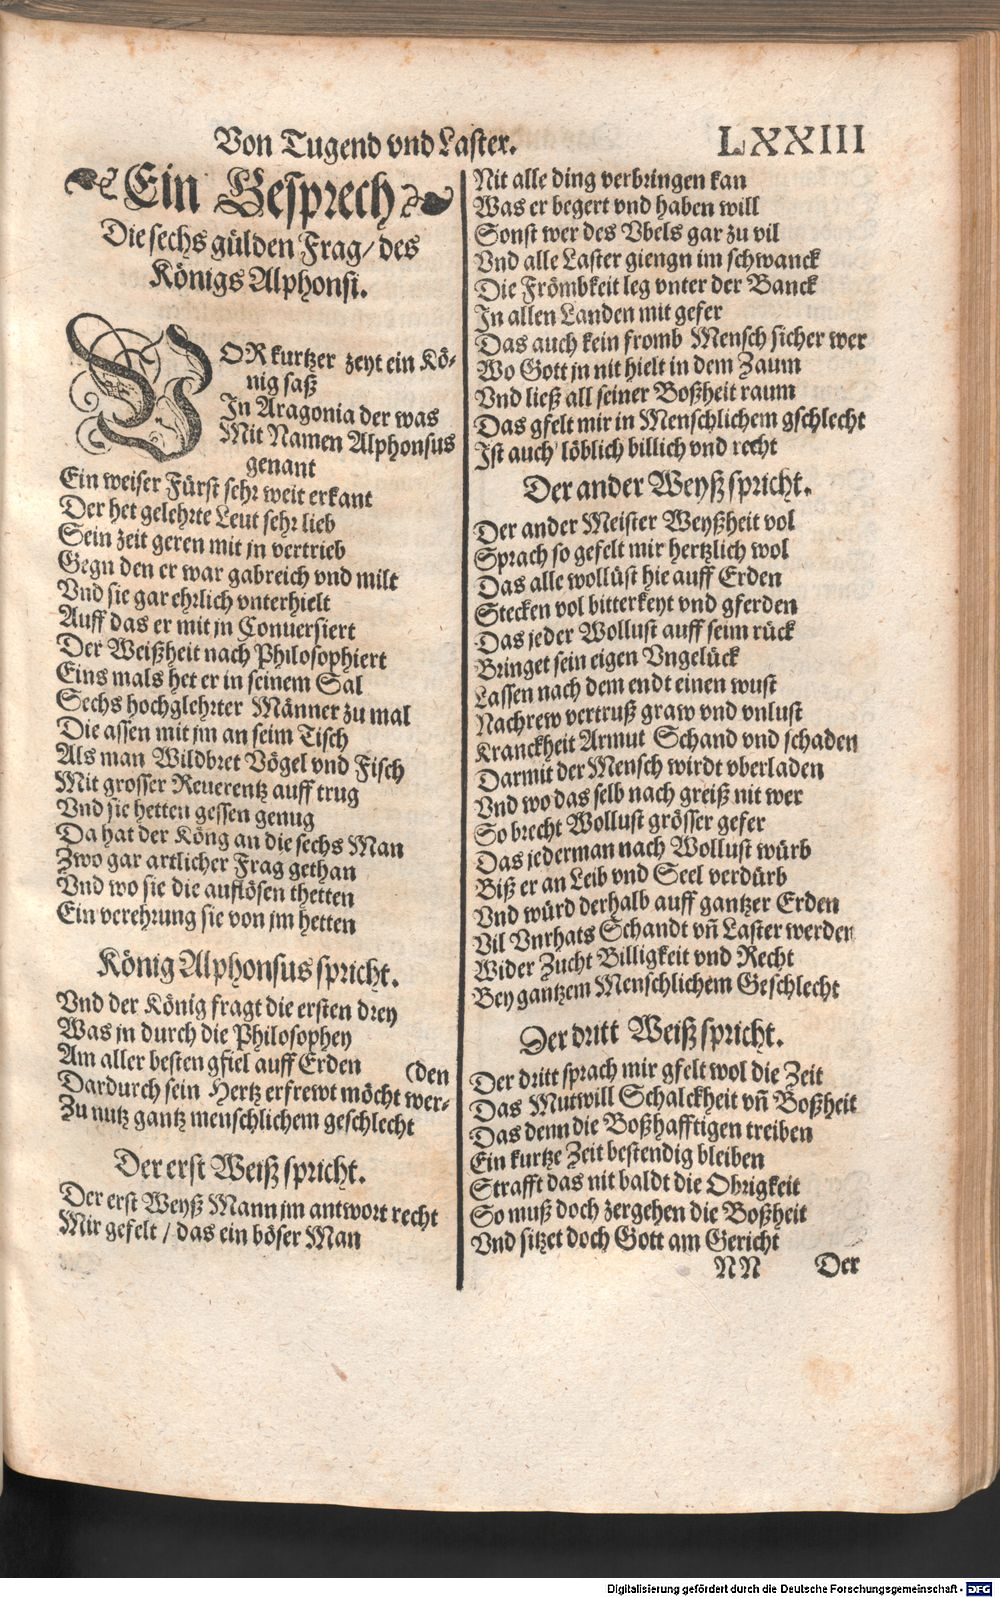 Von Tugend vnd Laster. LXXIII
Ein Gesprech
Die sechs gülden Frag / des
Königs Alphonsi.
VOR kurtzer zeyt ein Kö-
nig saß
In Aragonia der was
Mit Namen Alphonsus
genant
Ein weiser Fürst sehr weit erkant
Der het gelehrte Leut sehr lieb
Sein zeit geren mit jn vertrieb
Gegn den er war gabreich vnd milt
Vnd sie gar ehrlich vnterhielt
Auff das er mit jn Conuersiert
Der Weißheit nach Philosophiert
Eins mals het er in seinem Sal
Sechs hochglehrter Männer zu mal
Die assen mit jm an seim Tisch
Als man Wildbret Vögel vnd Fisch
Mit grosser Reuerentz auff trug
Vnd sie hetten gessen genug
Da hat der Köng an die sechs Man
Zwo gar artlicher Frag gethan
Vnd wo sie die auflösen thetten
Ein verehrung sie von jm hetten
König Alphonsus spricht.
Vnd der König fragt die ersten drey
Was jn durch die Philosophey
Am aller besten gfiel auff Erden (den
Dardurch sein Hertz erfrewt möcht wer-
Zu nutz gantz menschlichem geschlecht
Der erst Weiß spricht.
Der erst Weyß Mann jm antwort recht
Mir gefelt / das ein böser Man
Nit alle ding verbringen kan
Was er begert vnd haben will
Sonst wer des Vbels gar zu vil
Vnd alle Laster giengn im schwanck
Die Frömbkeit leg vnter der Banck
In allen Landen mit gefer
Das auch kein fromb Mensch sicher wer
Wo Gott jn nit hielt in dem Zaum
Vnd ließ all seiner Boßheit raum
Das gfelt mir in Menschlichem gschlecht
Ist auch löblich billich vnd recht
Der ander Weyß spricht.
Der ander Meister Weyßheit vol
Sprach so gefelt mir hertzlich wol
Das alle wollüst hie auff Erden
Stecken vol bitterkeyt vnd gferden
Das jeder Wollust auff seim rück
Bringet sein eigen Vngelück
Lassen nach dem endt einen wust
Nachrew vertruß graw vnd vnlust
Kranckheit Armut Schand vnd schaden
Darmit der Mensch wirdt vberladen
Vnd wo das selb nach greiß nit wer
So brecht Wollust grösser gefer
Das jederman nach Wollust würb
Biß er an Leib vnd Seel verdürb
Vnd würd derhalb auff gantzer Erden
Vil Vnrhats Schandt vñ Laster werden
Wider Zucht Billigkeit vnd Recht
Bey gantzem Menschlichem Geschlecht
Der dritt Weiß spricht.
Der dritt sprach mir gfelt wol die Zeit
Das Mutwill Schalckheit vñ Boßheit
Das denn die Boßhafftigen treiben
Ein kurtze Zeit bestendig bleiben
Strafft das nit baldt die Obrigkeit
So muß doch zergehen die Boßheit
Vnd sitzet doch Gott am Gericht
NN Der
Digitalisierung gefördert durch die Deutsche Forschungsgemeinschaft - DFG